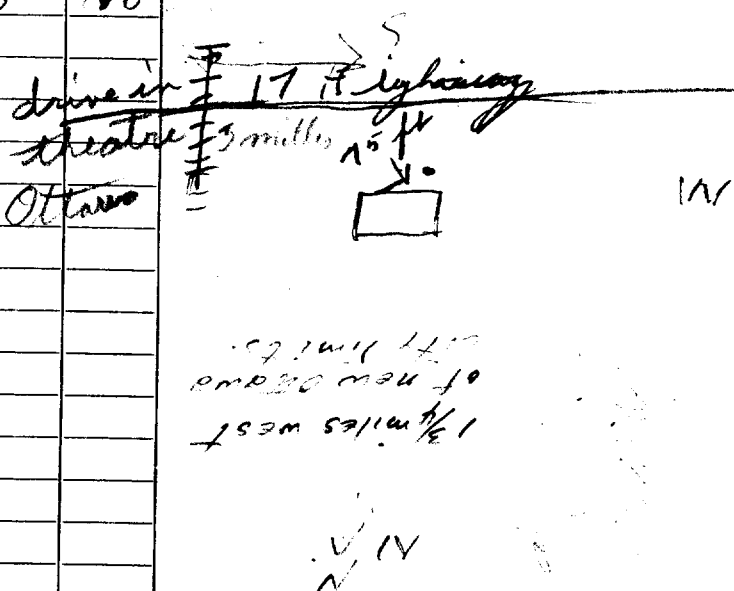 S
drive in 17 Highway
theatre 3 miles 75 ft
Ottawa
W
1 3/4 miles west
of new Ottawa
city limits.
N